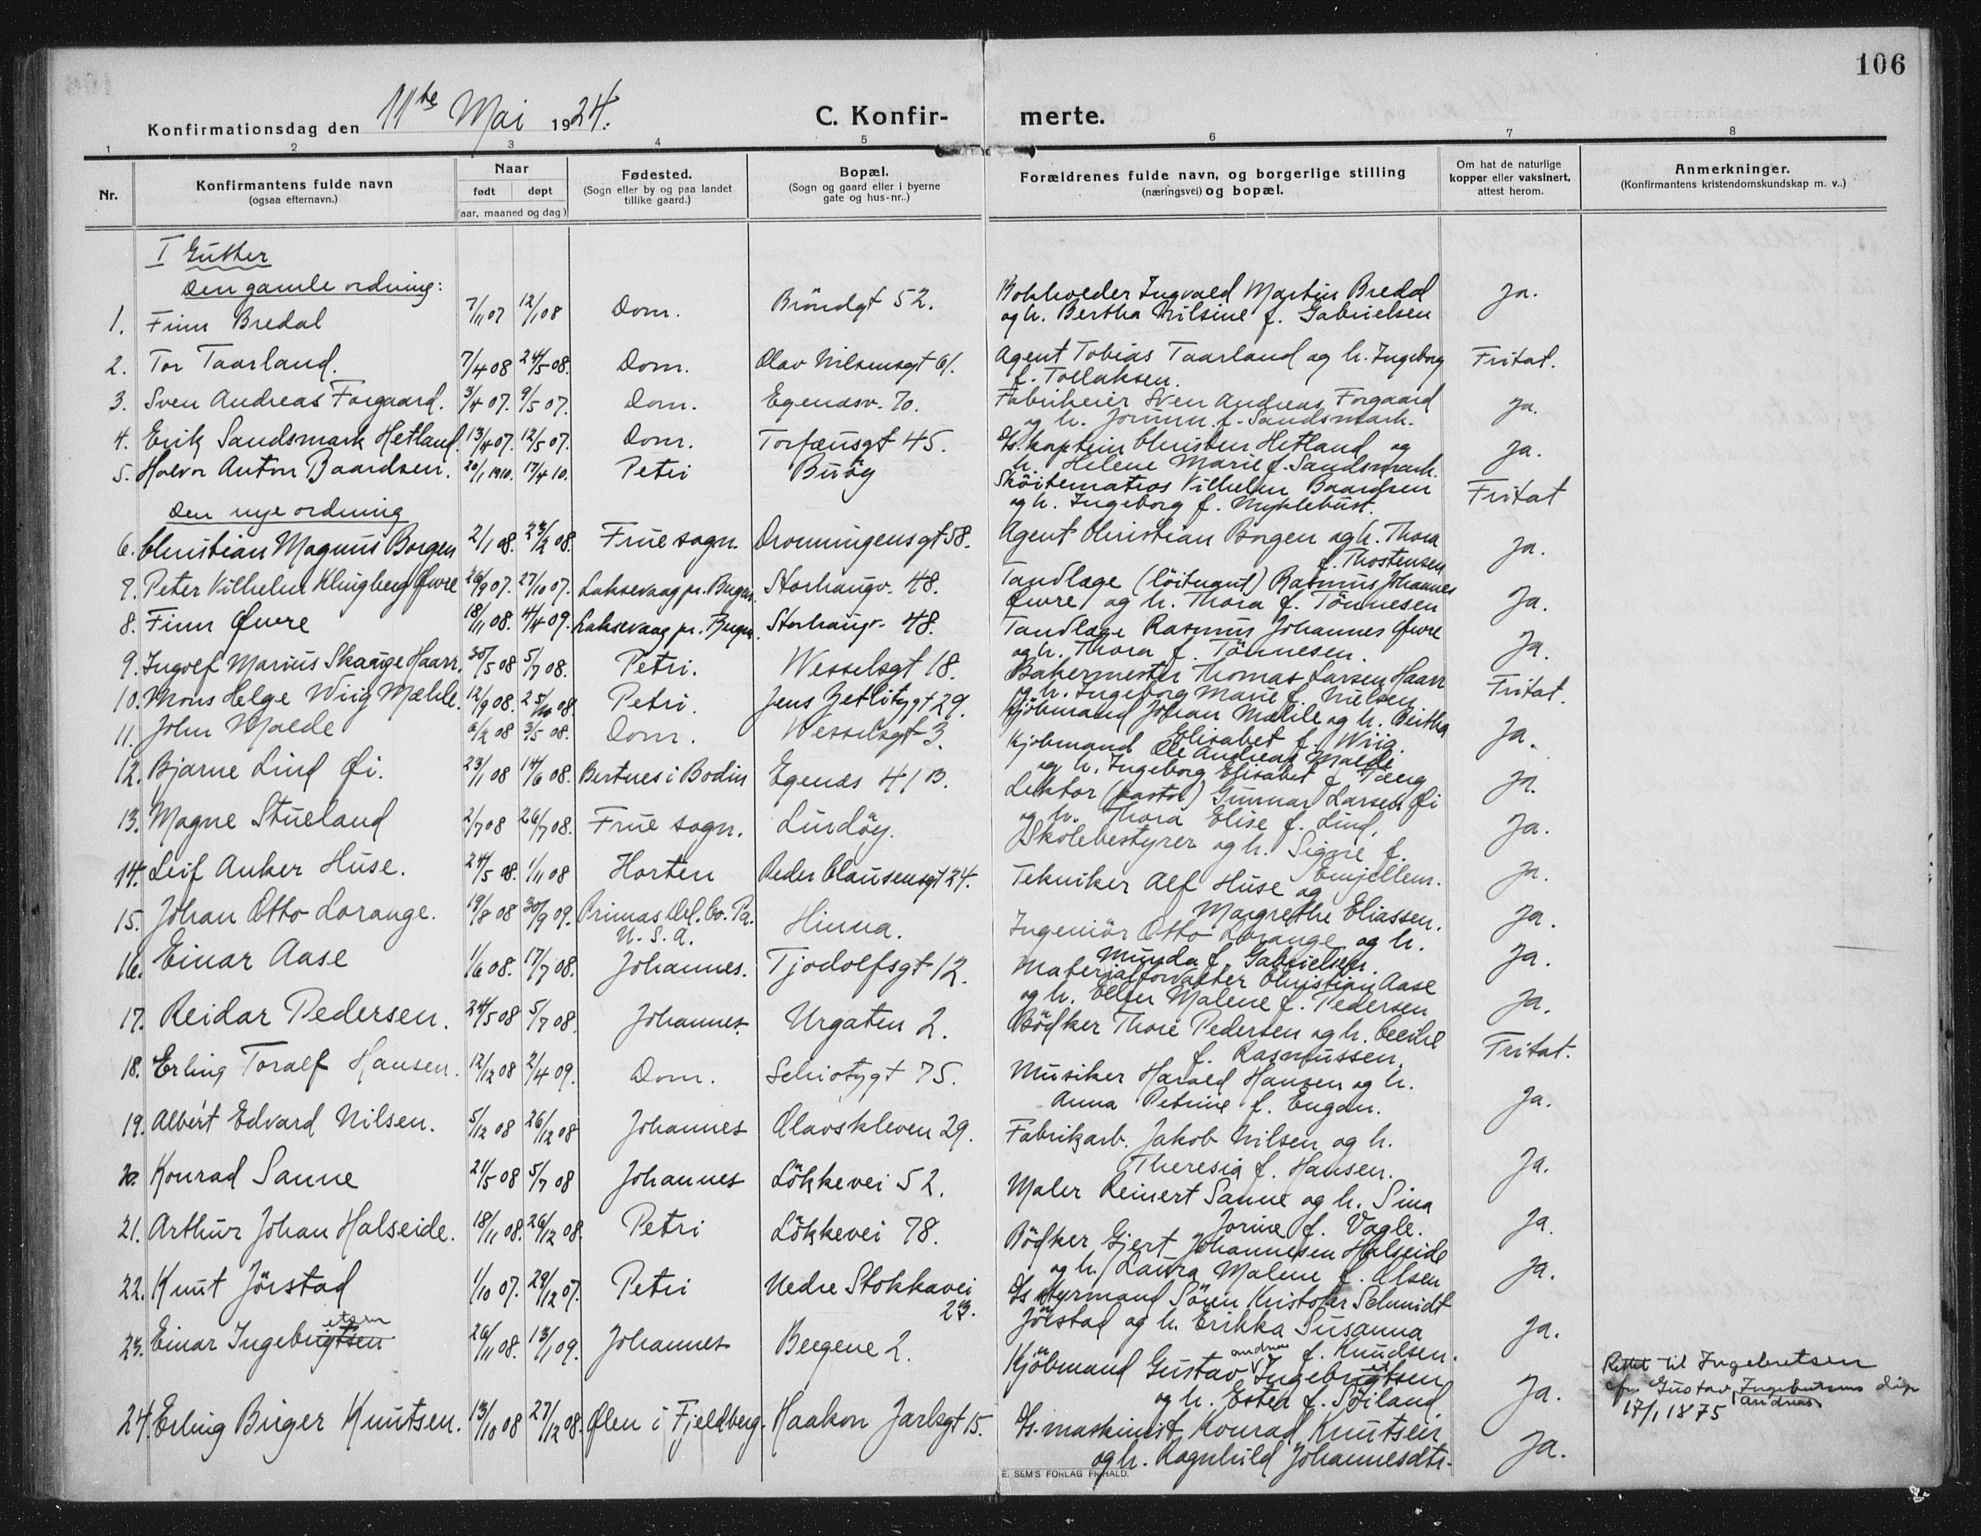 106
Konfirmationsdag den 11te Mai 1924. C. Konfir- merte.
1 2 3 4 5 6 7 8
Nr.
Konfirmantens fulde navn
(ogsaa efternavn.)
Naar
født døpt
(aar, maaned og dag)
Fødested.
(Sogn eller by og paa landet
tillike gaard.)
Bopæl.
(Sogn og gaard eller i byerne
gate og hus-nr..)
Forældrenes fulde navn, og borgerlige stilling
(næringsvei) og bopæl.
Om hat de naturlige
kopper eller vaksinert,
attest herom.
Anmerkninger.
(Konfirmantens kristendomskundskap m. v..)
I Gutter
Den gamle ordning:
1. Finn Bredal 7/11 07 12/1 08 Dom. Bröndgt 52. Bokholder Ingvald Martin Bredal ja.
og h. Bertha Nilsine f. Gabrielsen
2. Tor Taarland. 7/4 08 24/5 08. Dom. Olav Nilsensgt 61. Agent Tobias Taarland og h. Ingeborg Fritat.
f. Tollaksen.
3. Sven Andreas Forgaard. 3/4 07. 9/5 07. Dom. Egenæsv. 70. Fabrikeier Sven Andreas Forgaard ja.
og h. Jorunn f. Sandsmark.
4. Erik Sandsmark Hetland. 13/4 07. 12/5 07. Dom. Torfæusgt 45. Ds. kaptein Christen Hetland og ja.
h. Helene Marie f. Sandsmark.
5. Halvor Anton Baardsen. 20/1 1910. 17/4 10. Petri Buöy Sköitematros Vilhelm Baardsen Fritat
og h. Ingeborg f. Myklebust.
Den nye ordning
6. Christian Magnus Borgen 2/1 08. 23/2 08. Frue sogn. Dronningensgt 58. Agent Christian Borgen og h. Thora ja.
f. Thostensen
7. Peter Vilhelm Klingberg Øvre 26/9 07. 27/10 07. Laksevaag pr. Bergen. Storhaugv. 48. Tandlæge (löitnant) Rasmus Johannes Ja.
Øvre og h. Thora f. Tönnesen
8. Finn Øvre 18/11 08. 4/4 09. Laksevaag pr. Bergen. Storhaugv. 48. Tandlæge Rasmus Johannes Øvre Ja.
og h. Thora f. Tönnesen.
9. Ingolf Marius Skauge Haarr. 30/5 08 5/7 08. Petri. Wesselsgt 18. Bakermester Thomas Larsen Haarr Fritat.
og h. Ingeborg Marie f. Nielsen
10. Mons Helge Wiig Mæhle. 12/9 08. 25/10 08. Petri. Jens Zetlitzgt 29. Kjöbmand Johan Mæhle og h. Bertha Ja.
Elisabet f. Wiig.
11. John Molde 6/2 08 3/5 08. Dom. Wesselsgt 3. Kjöbmand Ole Andreas Molde ja.
og h. Ingeborg Elisabet f.
12. Bjarne Lind Øi. 23/1 08 14/6 08. Bertnes i Bodin Egenæs 41 B. Lektor Gunnar Larsen Øi Ja.
og h. Thora Elise f. Lind.
13. Magne Stueland 2/7 08 26/7 08. Frue sogn. Lindöy. Skolebestyrer og h. Signe f. ja.
14. Leif Anker Huse. 24/5 08. 1/11 08 Horten Peder Clausensgt 24. Tekniker Alf Huse og ja.
Margrethe Eliassen.
15. Johan Otto Lorange. 19/8 08 30/9 09. Primas Del. Co. Pa. Hinna. Ingeniör Otto Lorange og h. Ja.
U. S. A. Munda f. Gabrielsen.
16. Einar Aase 1/6 08. 17/7 08. Johannes. Tjodolfsgt 12. Materialforvalter Christian Aase Ja.
og h. Ellen Malene f. Pedersen
17. Reidar Pedersen. 24/5 08 5/7 08. Johannes Urgaten 2. Bödker Thore Pedersen og h. Cecilie Fritat.
f. Rasmussen.
18. Erling Toralf Hansen. 12/12 08 2/4 09. Dom. Schiotzgt 75. Musiker Harald Hansen og h. Ja.
Anna Petrine f. Engan.
19. Albert Edvard Nilsen. 5/12 08 26/12 08 Johannes Olavskleven 29. Fabrikarb. Jakob Nilsen og h. Ja.
Theresia f. Hansen.
20. Konrad Sanne 21/5 08 5/7 08 Johannes Lökkevei 52. Maler Reinert Sanne og h. Sina Ja.
Jorine f. Vagle.
21. Arthur Johan Halseide. 18/11 08. 26/12 08. Petri Lökkevei 78. Bödker Gjert Johannesen Halseide Ja.
og h. Laura Malene f. Olsen
22. Knut Jörstad 1/10 07. 29/12 07. Petri Nedre Stokkavei Ds styrmand Sören Kristofer Schmidt Ja.
23. Jörstad og h. Erikka Susanna
f. Knudsen.
23. Einar Ingebrigtsen etsen 26/11 08. 13/1 09. Johannes Bergene 2. Kjöbmand Gustav Andreas Ingebrigtsen Ja. Rettet til Ingebretsen
og h. Ester f. Söiland for Gustav Andreas Ingebretsens
17/1 1875
24. Erling Birger Knutsen. 13/10 08 27/12 08. Ølen i Fjeldberg. Haakon Jarlsgt 15. Ds. maskinist Konrad Knutsen Ja.
og h. Ragnhild Johannesdtr.
E. SEM'S FORLAG FR.HALD.